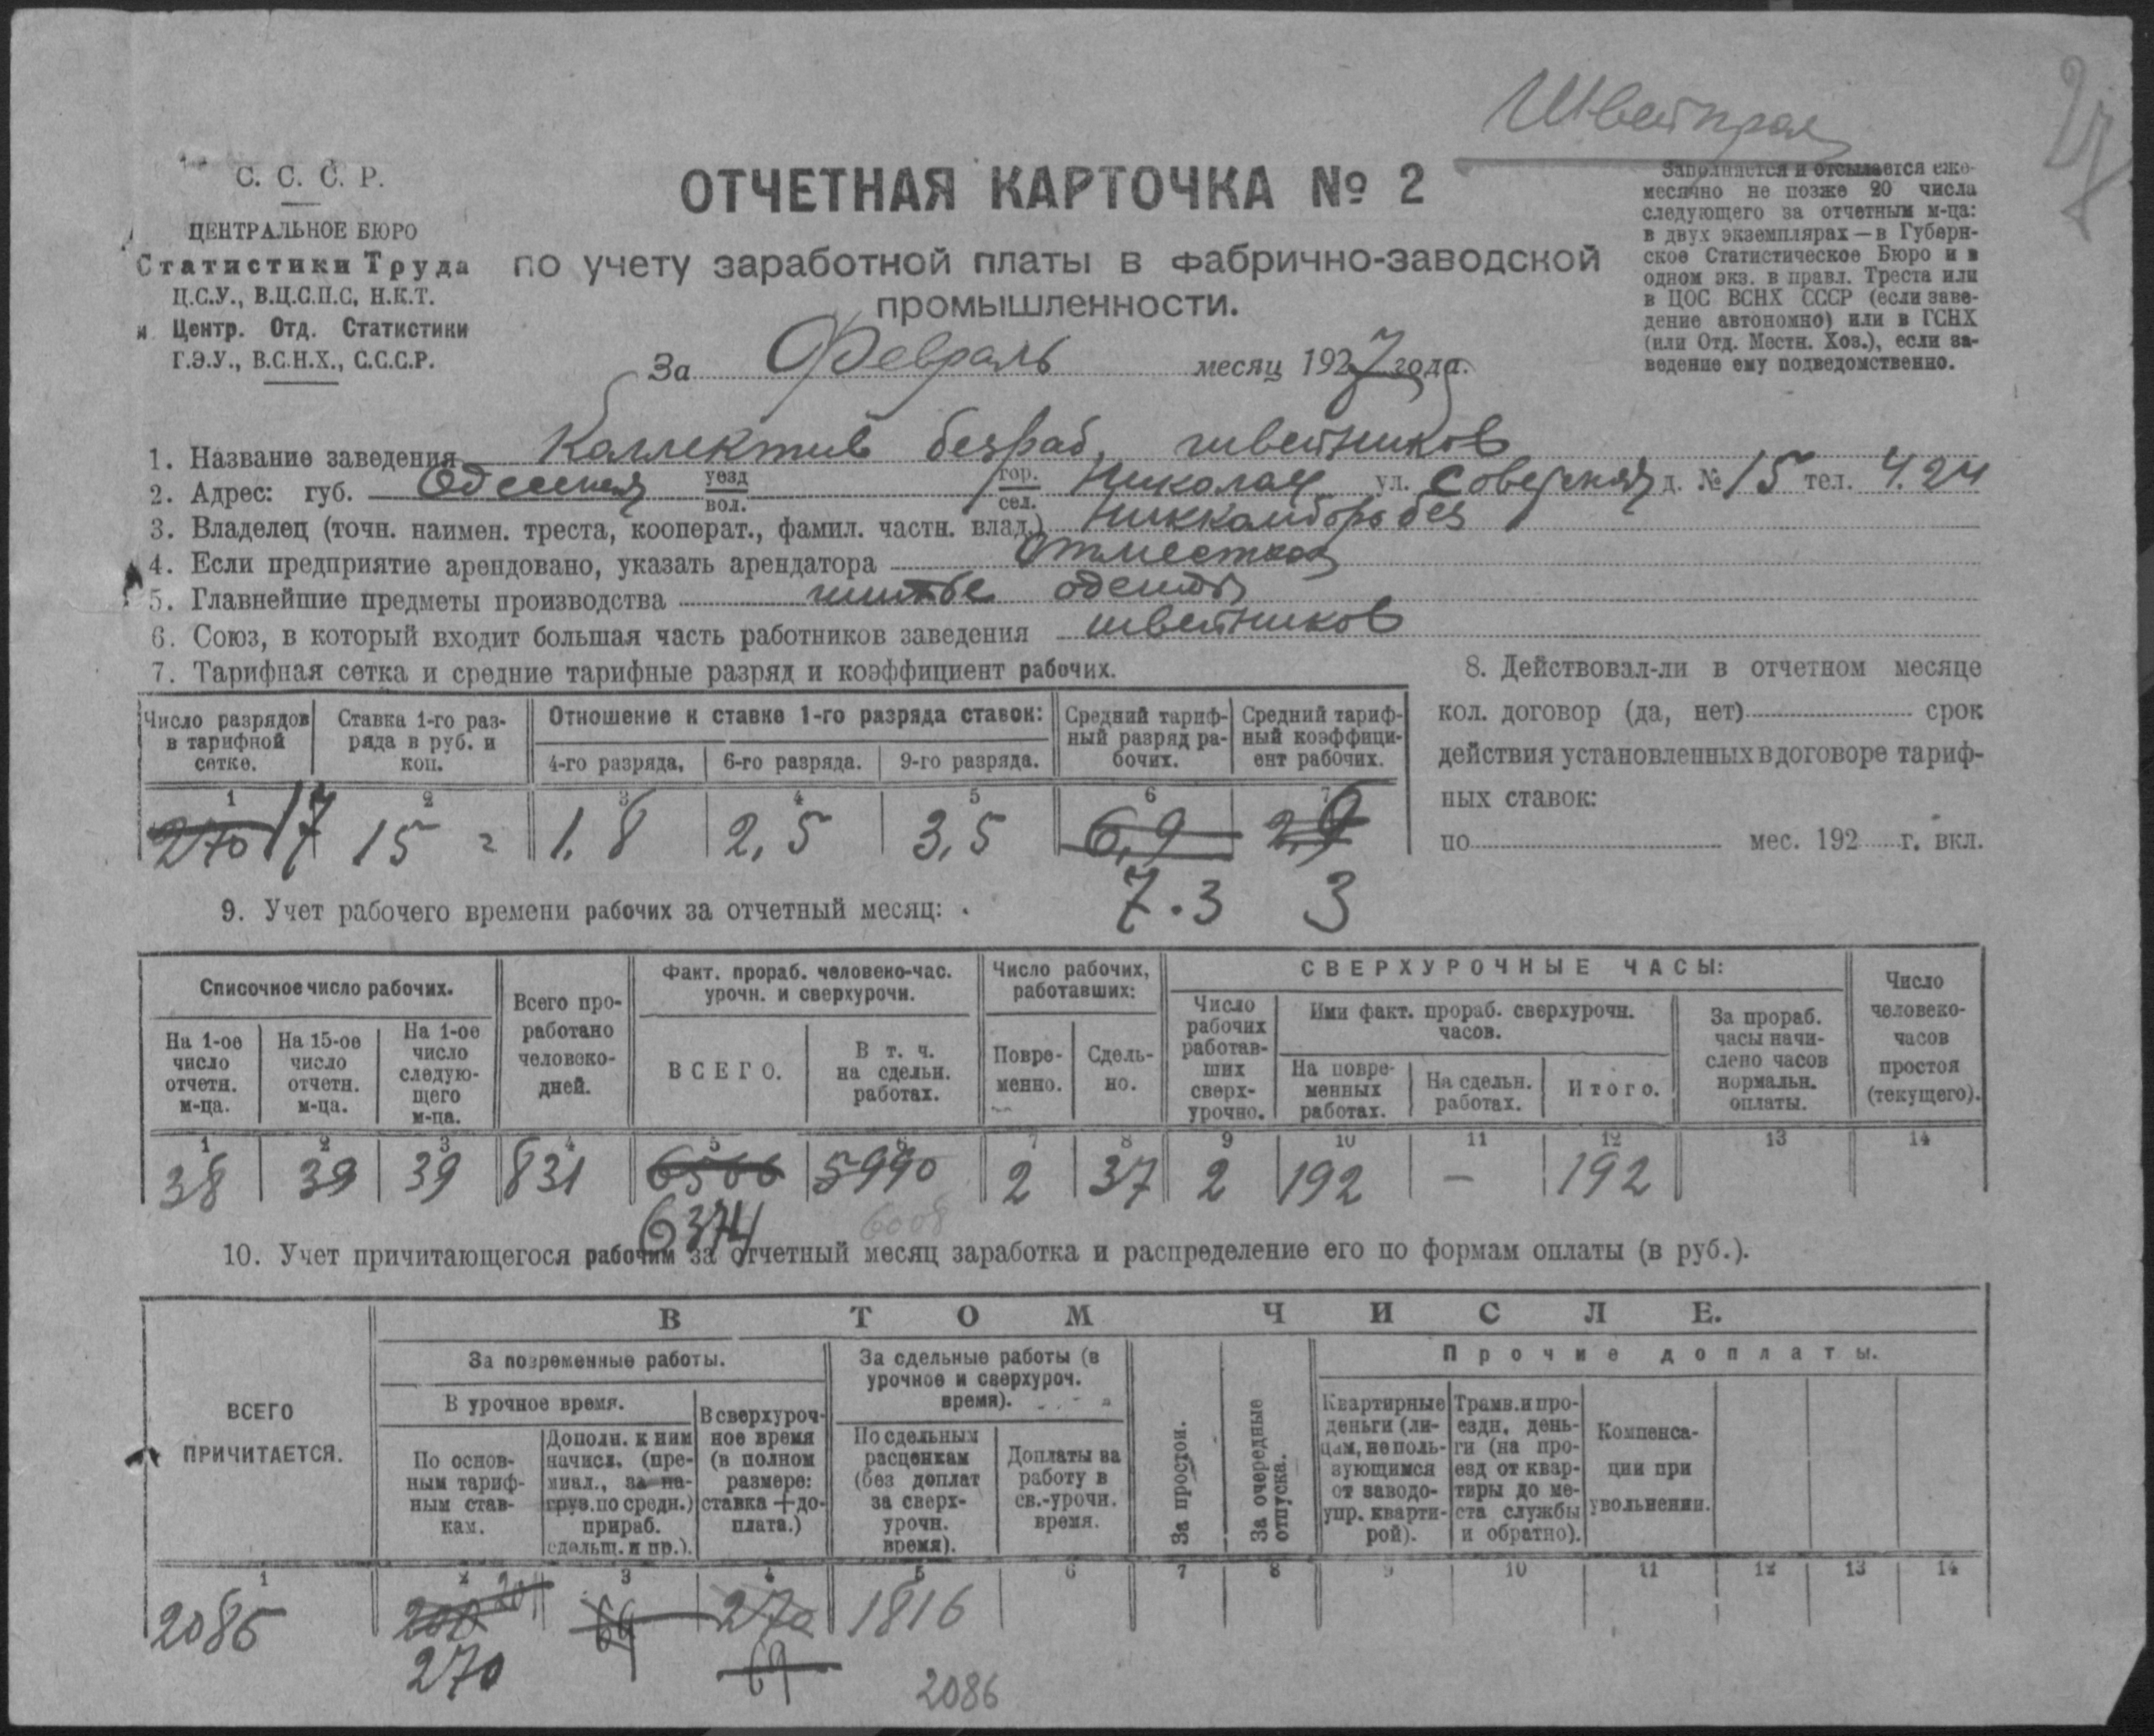 Швейпром
27
С. С. С. Р.
ЦЕНТРАЛЬНОЕ БЮРО
Статистики Труда
Ц.С.У., В.Ц.С.П.С, Н.К.Т.
и Центр. Отд. Статистики
Г.Э.У., В.С.Н.Х., С.С.С.Р.
ОТЧЕТНАЯ КАРТОЧКА № 2
по учету заработной платы в фабрично-заводской
промышленности.
За Февраль месяц 1927 года.
Заполняется и отсылается еже-
месячно не позже 20 числа
следующего за отчетным м-ца:
в двух экземплярах — в Губерн-
ское Статистическое Бюро и в
одном экз. в правл. Треста или
в ЦОС ВСНХ СССР (если заве-
дение автономно) или в ГСНХ
(или Отд. Местн. Хоз.), если за-
ведение ему подведомственно.
1. Название заведения Коллектив безраб. швейников
2. Адрес: губ. Одесская уезд вол. гор. сел. Николаев ул. Советская д. № 15 тел. 4.24
3. Владелец (точн. наимен. треста, кооперат., фамил. частн. влад.) Никкомборобез
4. Если предприятие арендовано, указать арендатора
5. Главнейшие предметы производства шитье одежды
6. Союз, в который входит большая часть работников заведения швейников
7. Тарифная сетка и средние тарифные разряд и коэффициент рабочих.
Число разрядов в тарифной сетке.
Ставка 1-го раз- ряда в руб. и коп.
Отношение к ставке 1-го разряда ставок:
4-го разряда, 6-го разряда. 9-го разряда.
Средний тариф- ный разряд ра- бочих.
Средний тариф- ный коэффици- ент рабочих.
1 2 3 4 5 6 7
270 17 15 = 1,8 2,5 3,5 6,9 2,9
7.3 3
8. Действовал-ли в отчетном месяце
кол. договор (да, нет) срок
действия установленных в договоре тариф-
ных ставок:
по мес. 192 г. вкл.
9. Учет рабочего времени рабочих за отчетный месяц:
Списочное число рабочих.
На 1-ое число отчетн. м-ца.
На 15-ое число отчетн. м-ца.
На 1-ое число следую- щего м-ца.
Всего про- работано человеко- дней.
Факт. прораб. человеко-час. урочн. и сверхурочн.
ВСЕГО.
В т. ч. на сдельн. работах.
Число рабочих, работавших:
Повре- менно.
Сдель- но.
СВЕРХУРОЧНЫЕ ЧАСЫ:
Число рабочих работав- ших сверх- урочно.
Ими факт. прораб. сверхурочн. часов.
На повре- менных работах.
На сдельн. работах.
Итого.
За прораб. часы начи- слено часов нормальн. оплаты.
Число человеко- часов простоя (текущего).
1 2 3 4 5 6 7 8 9 10 11 12 13 14
38 39 39 831 6566 5990 2 37 2 192 — 192
6374 6008
10. Учет причитающегося рабочим за отчетный месяц заработка и распределение его по формам оплаты (в руб.).
ВСЕГО ПРИЧИТАЕТСЯ.
В ТОМ ЧИСЛЕ.
За повременные работы.
В урочное время.
По основ- ным тариф- ным став- кам.
Дополн. к ним начисл. (пре- миал., за на- груз. по средн.) прираб. сдельщ. и пр.).
В сверхуроч- ное время (в полном размере: ставка + до- плата.)
За сдельные работы (в урочное и сверхуроч. время).
По сдельным расценкам (без доплат за сверх- урочн. время).
Доплаты за работу в св.-урочн. время.
За простои.
За очередные отпуска.
Прочие доплаты.
Квартирные деньги (ли- цам, не поль- зующимся от заводо- упр. кварти- рой).
Трамв. и про- ездн. день- ги (на про- езд от квар- тиры до ме- ста службы и обратно).
Компенса- ции при увольнении.
1 2 3 4 5 6 7 8 9 10 11 12 13 14
2086 200 69 270 1816
270 69 2086